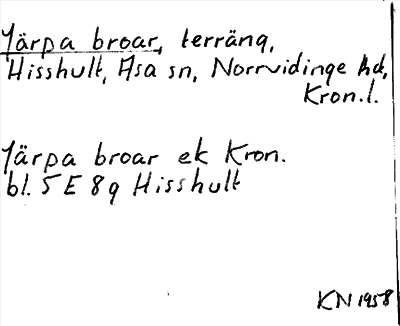 Järpa broar, terräng,
Hisshult, Asa sn, Norrvidinge hd,
Kron.l.
Järpa broar ek Kron.
bl. 5 E 8 g Hisshult
KN 1958